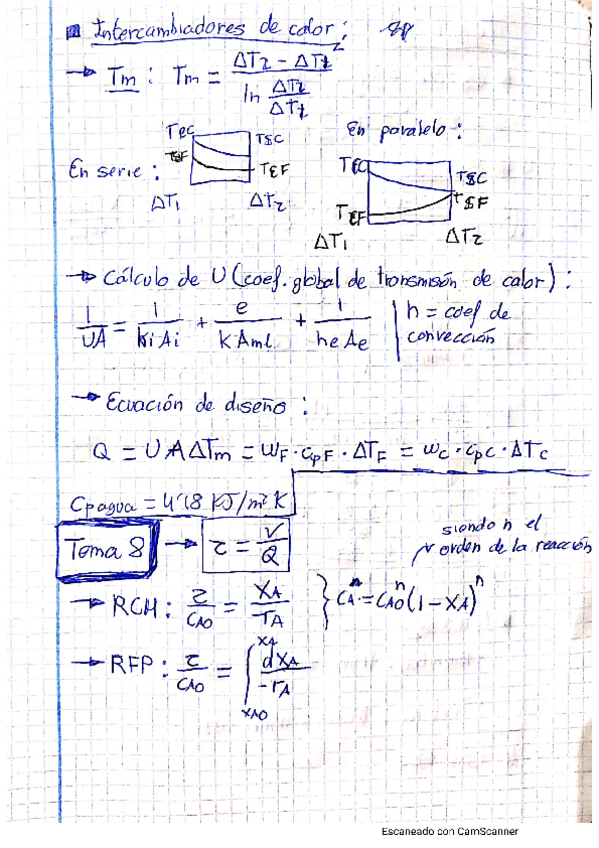 Intercambiadores de calor:
→ Tm : Tm = (ΔT2 - ΔT1) / (ln ΔT2/ΔT1)
En paralelo:
TEC TSC
TSF TEF
En serie:
ΔT1 ΔT2
TEC TSC
TEF TSF
ΔT1 ΔT2
→ Cálculo de U (coef. global de transmisión de calor):
1/UA = 1/hiAi + e/kAml + 1/heAe | h = coef de convección
→ Ecuación de diseño:
Q = UAΔTm = wF·cpF·ΔTF = wc·cpc·ΔTc
Cpagua = 4'18 KJ/m² K
Tema 8 → τ = V/Q
siendo n el
orden de la reacción
→ RCM: τ/CAO = XA/rA } CAⁿ = CAOⁿ(1-XA)ⁿ
→ RFP: τ/CAO = ∫XAO^XA dXA/-rA
Escaneado con CamScanner